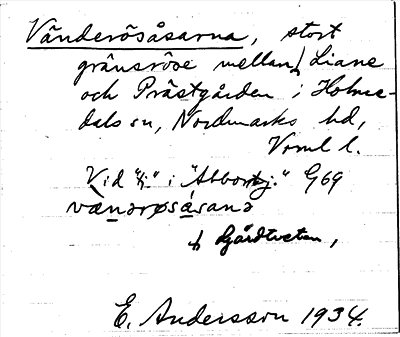 Vänderösåsarna, stort
gränsröse mellan Liane
och Prästgården i Holme-
dals sn, Nordmarks hd,
Vrml l.
Vid "i" i "Abborrtj." G69
vænərøsåsanə
Gårdtveten,
E. Andersson 1934.